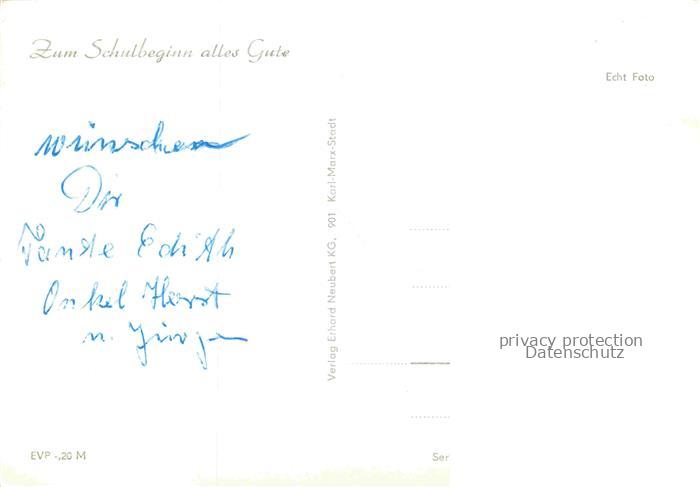 Zum Schulbeginn alles Gute
Echt Foto
wünschen
Dir
Tante Edith
Onkel Horst
u. Jürgen
Verlag Erhard Neubert KG, 901 Karl-Marx-Stadt
privacy protection
Datenschutz
EVP -,20 M
Ser